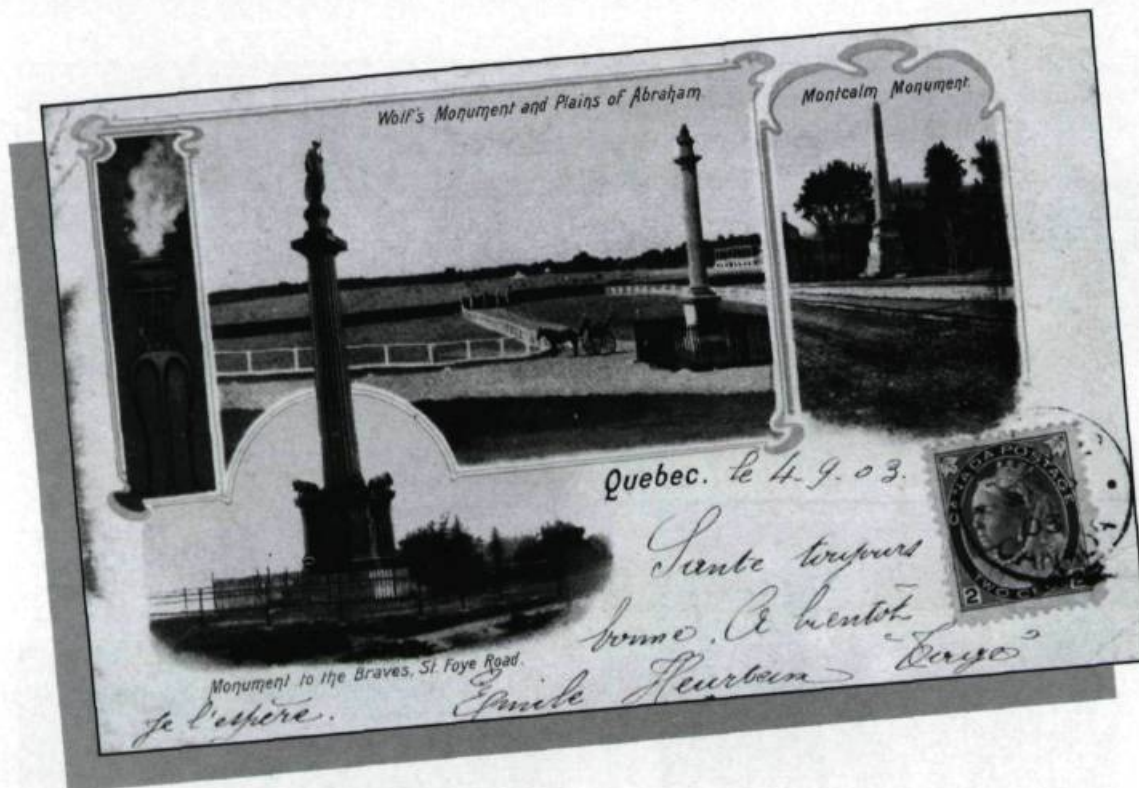 Wolf's Monument and Plains of Abraham.
Montcalm Monument.
Quebec. le 4-9-03.
CANADA POSTAGE
2 TWO CENTS 2
Sante toujours
bonne. A bientôt
Monument to the Braves, St. Foye Road.
je l'espère. Emile